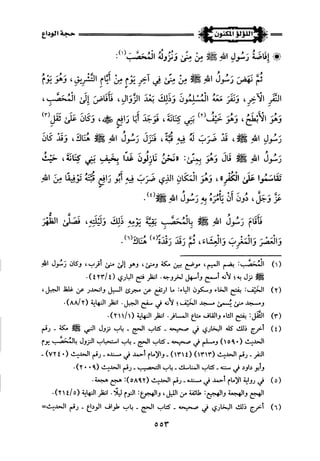 اللؤلؤ المكنون
حجة الوداع
إِفَاضَةُ رَسُولِ اللهِ ﷺ مِنْ مِنًى وَنُزُولُهُ الْمُحَصَّبَ (١):
ثُمَّ نَهَضَ رَسُولُ اللهِ ﷺ مِنْ مِنًى فِي آخِرِ يَوْمٍ مِنْ أَيَّامِ التَّشْرِيقِ، وَهُوَ يَوْمُ
النَّفْرِ الْآخِرِ، وَنَفَرَ مَعَهُ الْمُسْلِمُونَ وَذَلِكَ بَعْدَ الزَّوَالِ، فَأَفَاضَ إِلَى الْمُحَصَّبِ،
وَهُوَ الْأَبْطَحُ، وَهُوَ خَيْفُ (٢) بَنِي كِنَانَةَ، فَوَجَدَ أَبَا رَافِعٍ ﷺ، وَكَانَ عَلَى ثَقَلِ (٣)
رَسُولِ اللهِ ﷺ، قَدْ ضَرَبَ لَهُ فِيهِ قُبَّةً، فَنَزَلَ رَسُولُ اللهِ ﷺ هُنَاكَ، وَقَدْ كَانَ
رَسُولُ اللهِ ﷺ قَالَ وَهُوَ بِمِنًى: «نَحْنُ نَازِلُونَ غَدًا بِخَيْفِ بَنِي كِنَانَةَ، حَيْثُ
تَقَاسَمُوا عَلَى الْكُفْرِ»، وَهُوَ الْمَكَانُ الَّذِي ضَرَبَ فِيهِ أَبُو رَافِعٍ قُبَّتَهُ تَوْفِيقًا مِنَ اللهِ
عَزَّ وَجَلَّ، دُونَ أَنْ يَأْمُرَهُ بِهِ رَسُولُ اللهِ ﷺ (٤).
فَأَقَامَ رَسُولُ اللهِ ﷺ بِالْمُحَصَّبِ بَقِيَّةَ يَوْمِهِ ذَلِكَ وَلَيْلَتِهِ، فَصَلَّى الظُّهْرَ
وَالْعَصْرَ وَالْمَغْرِبَ وَالْعِشَاءَ، ثُمَّ رَقَدَ رَقْدَةً (٥) هُنَاكَ (٦).
(١) المُحَصَّب: بضم الميم، موضع بين مكة ومنى، وهو إلى منى أقرب، وكان رسول الله
ﷺ نزل به؛ لأنه أسمح وأسهل لخروجه. انظر فتح الباري (٤٢٣/٤).
(٢) الخَيْف: بفتح الخاء وسكون الياء: ما ارتفع عن مجرى السيل وانحدر عن غلظ الجبل،
ومسجد منى يُسمى مسجد الخَيْف؛ لأنه في سفح الجبل. انظر النهاية (٨٨/٢).
(٣) الثَّقَل: بفتح الثاء والقاف متاع المسافر. انظر النهاية (٢١١/١).
(٤) أخرج ذلك كله البخاري في صحيحه - كتاب الحج - باب نزول النبي ﷺ مكة - رقم
الحديث (١٥٩٠) ومسلم في صحيحه - كتاب الحج - باب استحباب النزول بالمُحَصَّب يوم
النفر - رقم الحديث (١٣١٣) (١٣١٤) - والإمام أحمد في مسنده - رقم الحديث (٧٢٤٠) -
وأبو داود في سننه - كتاب المناسك - باب التحصيب - رقم الحديث (٢٠٠٩).
(٥) في رواية الإمام أحمد في مسنده - رقم الحديث (٥٨٩٢): هجع هجعة.
الهجع والهجعة والهجيع: طائفة من الليل، والهجوع: النوم ليلًا. انظر النهاية (٢١٤/٥).
(٦) أخرج ذلك البخاري في صحيحه - كتاب الحج - باب طواف الوداع - رقم الحديث=
٥٥٣